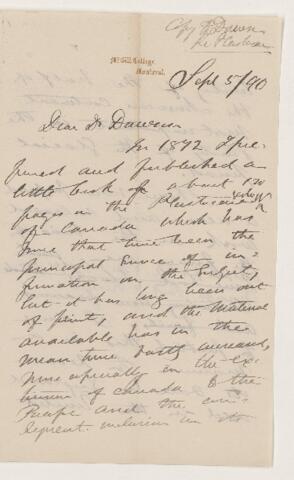 Copy Dr Dawson
McGill College,
Montreal.
Sept 5/90
Dear Dr Dawson
In 1872 I pre-
pared and published a
little book of about 120
pages on the Pleistocene Geology
of Canada which has
since that time been the
principal source of in-
formation on the subject,
but it has long been out
of print, and the material
available has in the
mean time vastly increased,
more especially in the ex-
tension of Canada to the
Pacific and the con-
sequent